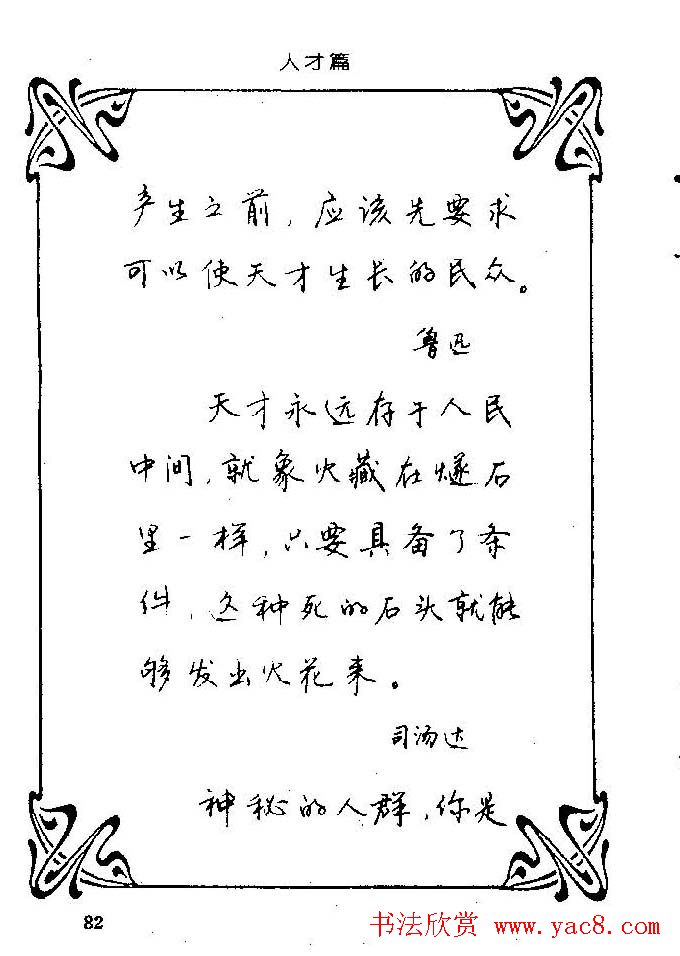 人才篇
产生之前，应该先要求
可以使天才生长的民众。
鲁迅
天才永远存于人民
中间，就象火藏在燧石
里一样，只要具备了条
件，这种死的石头就能
够发出火花来。
司汤达
神秘的人群，你是
82
书法欣赏 www.yac8.com